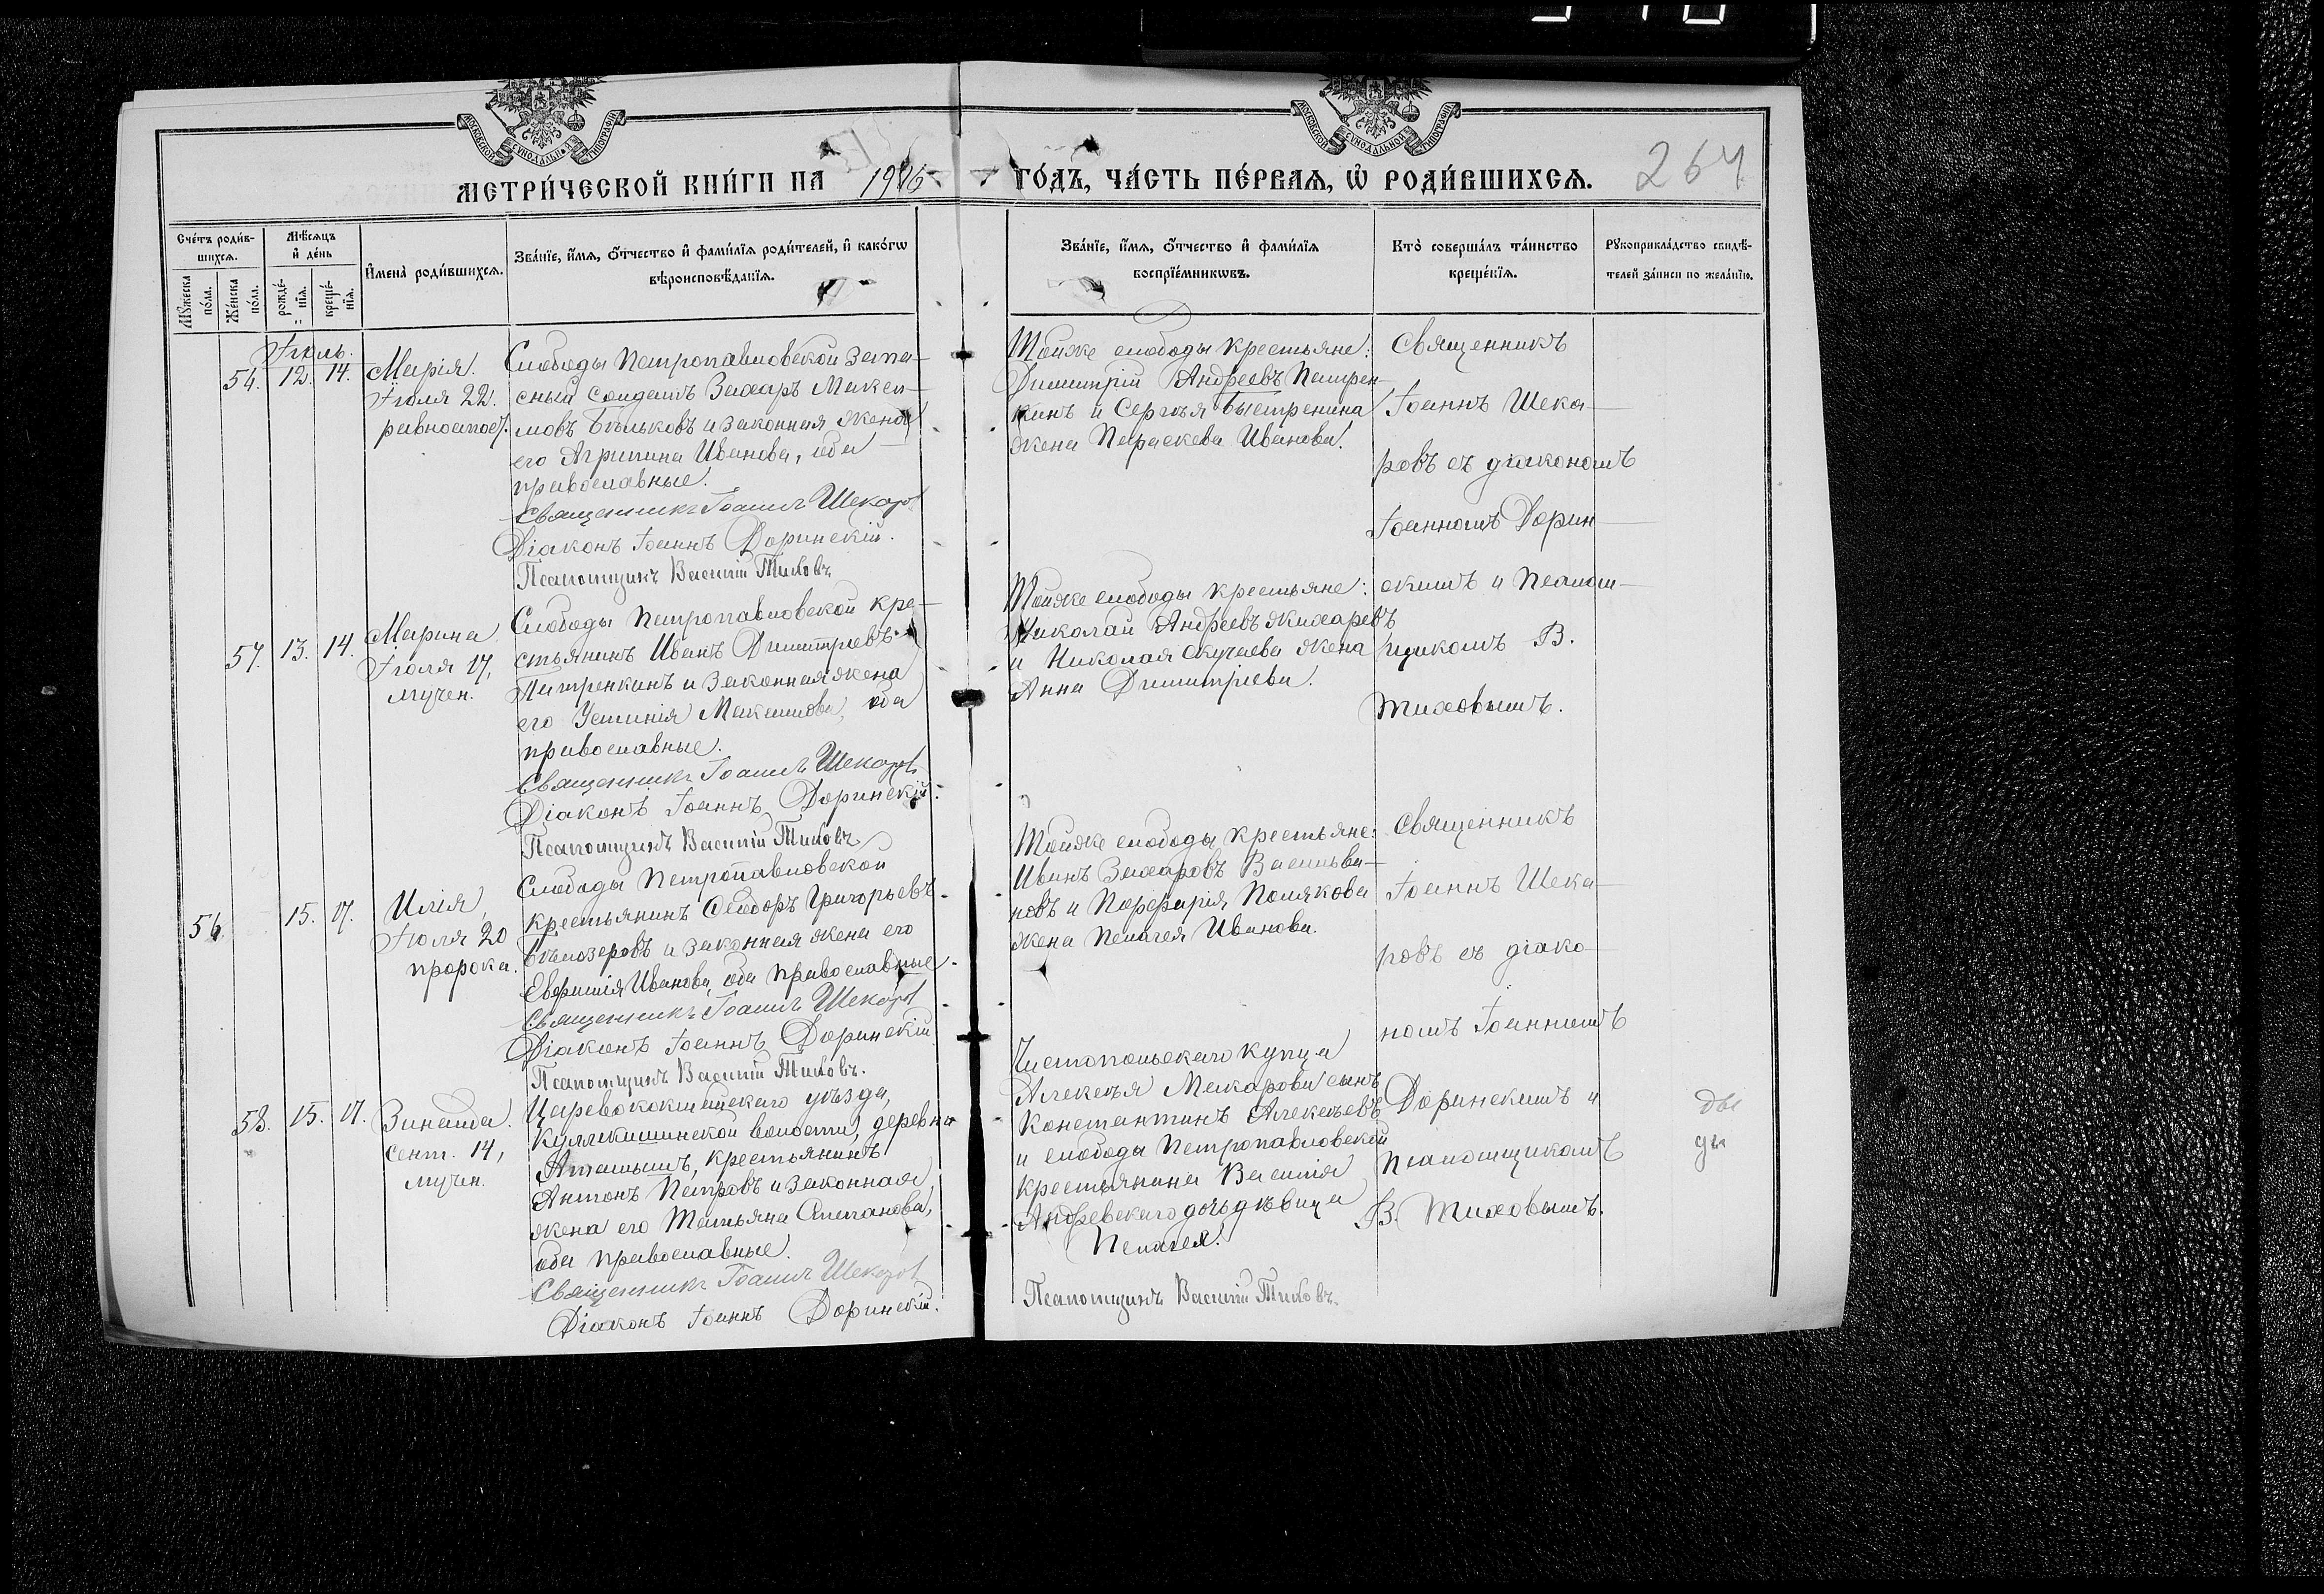 МОСКОВСКОЙ СУНОДАЛЬНОЙ ТИПОГРАФІИ
МЕТРИ́ЧЕСКОЙ КНИ́ГИ НА
МОСКОВСКОЙ СУНОДАЛЬНОЙ ТИПОГРАФІИ
ГО́ДЪ, ЧА́СТЬ ПЕ́РВАѦ, Ѡ҆ РОДИ́ВШИХСѦ.
264
Сче́тъ роди́в-
шихсѧ.
Мꙋ́жеска
по́ла.
Же́нска
по́ла.
Мѣ́сѧцъ
и҆ де́нь
рожде́-
нїѧ.
креще́-
нїѧ.
И҆мена̀ роди́вшихсѧ.
Зва́нїе, и҆́мѧ, ѻ҆́тчество и҆ фами́лїѧ роди́телей, и҆ како́гѡ
вѣроисповѣ́данїѧ.
Зва́нїе, и҆́мѧ, ѻ҆́тчество и҆ фами́лїѧ
воспрїе́мникѡвъ.
Кто̀ соверша́лъ та́инство
креще́нїѧ.
Рꙋкоприкла́дство свидѣ́-
телей за́писи по жела́нїю.
Іюль.
54. 12. 14.
Марія.
Іюля 22.
равноапос.
Слободы Петропавловской запа-
сный солдатъ Захаръ Макси-
мовъ Бѣльковъ и законная жена
его Агрипина Иванова, оба
православные.
Священникъ Іоаннъ Шекаров
Діаконъ Іоаннъ Доринскій.
Псаломщикъ Василій Тиховъ
Тойже слободы крестьяне:
Димитрій Андреевъ Патрен-
кинъ и Сергѣя Быстренина
жена Параскева Иванова.
Священникъ
Іоаннъ Шека-
ровъ съ діакономъ
Іоанномъ Дорин-
скимъ и псалом-
щикомъ В.
Тиховымъ.
57. 13. 14.
Марина
Іюля 17,
мучен.
Слободы Петропавловской кре-
стьянинъ Иванъ Димитріевъ
Патренкинъ и законная жена
его Устинія Максимова, оба
православные.
Священникъ Іоаннъ Шекаровъ
Діаконъ Іоаннъ Доринскій.
Псаломщикъ Василій Тиховъ
Тойже слободы крестьяне:
Николай Андреевъ Жихаревъ
и Николая Скучаева жена
Анна Димитріева.
56 15. 17.
Илія,
Іюля 20
пророка.
Слободы Петропавловской
крестьянинъ Ѳеодоръ Григорьевъ
Бѣлозеровъ и законная жена его
Евфимія Иванова, оба православные.
Священникъ Іоаннъ Шекаров
Діаконъ Іоаннъ Доринскій
Псаломщикъ Василій Тиховъ.
Тойже слободы крестьяне:
Иванъ Захаровъ Васильва-
новъ и Порфирія Полякова
жена Пелагея Иванова.
Священникъ
Іоаннъ Шека-
ровъ съ діако-
номъ Іоанномъ
Доринскимъ и
псаломщикомъ
В. Тиховымъ.
58. 15. 17.
Зинаида.
Сент. 14,
мучен.
Царевококшайскаго уѣзда,
волости, деревни
крестьянинъ
Антонъ Петровъ и законная
жена его Татьяна Степанова,
оба православные.
Священникъ Іоаннъ Шекаров
Діаконъ Іоаннъ Доринскій.
Чистопольскаго купца
Алексѣя Макарова сынъ
Константинъ Алексѣевъ
и слободы Петропавловской
крестьянина Василія
Андреевскаго дочь дѣвица
Пелагея.
Псаломщикъ Василій Тиховъ.